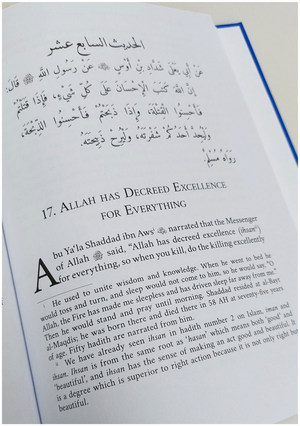 الحديث السابع عشر
عَنْ أَبِي يَعْلَى شَدَّادِ بْنِ أَوْسٍ ﷺ عَنْ رَسُولِ اللَّهِ ﷺ قَالَ:
إِنَّ اللَّهَ كَتَبَ الْإِحْسَانَ عَلَى كُلِّ شَيْءٍ، فَإِذَا قَتَلْتُمْ
فَأَحْسِنُوا الْقِتْلَةَ، وَإِذَا ذَبَحْتُمْ فَأَحْسِنُوا الذِّبْحَةَ،
وَلْيُحِدَّ أَحَدُكُمْ شَفْرَتَهُ، وَلْيُرِحْ ذَبِيحَتَهُ.
رَوَاهُ مُسْلِمٌ.
17. ALLAH HAS DECREED EXCELLENCE
FOR EVERYTHING
Abu Ya'la Shaddad ibn Aws narrated that the Messenger
of Allah ﷺ said, "Allah has decreed excellence (ihsan)
for everything, so when you kill, do the killing excellently
He used to unite wisdom and knowledge. When he went to bed he
would toss and turn, and sleep would not come to him, so he would say, "O
Allah, the Fire has made me sleepless and has driven sleep far away from me."
Then he would stand and pray until morning. Shaddad resided at al-Bayt
al-Maqdis; he was born there and died there in 58 AH at seventy-five years
of age. Fifty hadith are narrated from him.
We have already seen ihsan in hadith number 2 on Islam, iman and
ihsan. Ihsan is from the same root as 'hasan' which means both 'good' and
'beautiful', and ihsan has the sense of making an act good and beautiful. It
is a degree which is superior to right action because it is not only right but
beautiful.